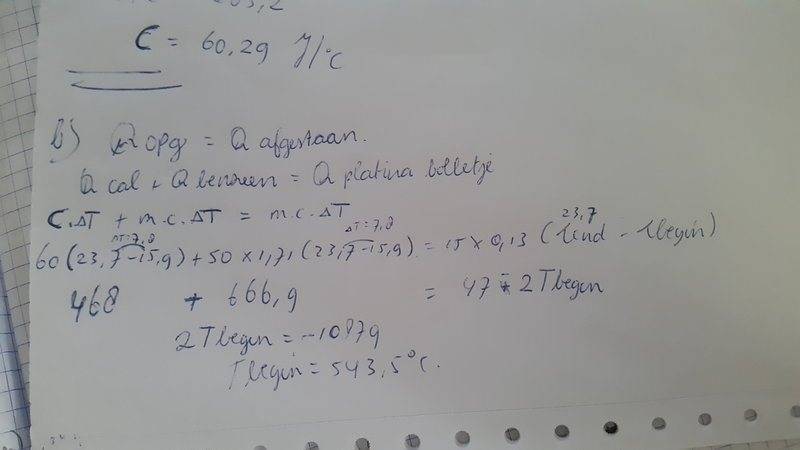 C = 60,29 J/°C
b) Q opg = Q afgestaan.
Q cal + Q benzeen = Q platina bolletje
C.ΔT + m.c.ΔT = m.c.ΔT
ΔT=7,8 ΔT=7,8 23,7
60(23,7-15,9) + 50 × 1,71 (23,7-15,9) = 15 × 0,13 (Teind - Tbegin)
468 + 666,9 = 47 - 2 Tbegin
2 Tbegin = -1087,9
Tbegin = 543,5°C.